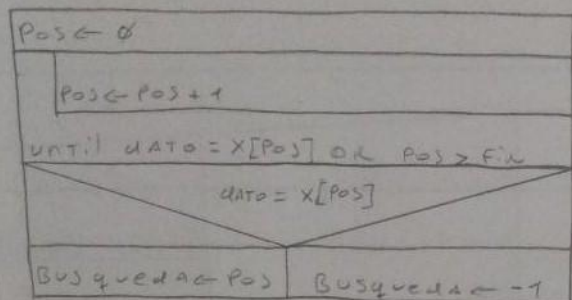 POS ← Ø
POS ← POS + 1
UNTIL DATO = X[POS] OR POS > FIN
DATO = X[POS]
BUSQUEDA ← POS
BUSQUEDA ← -1